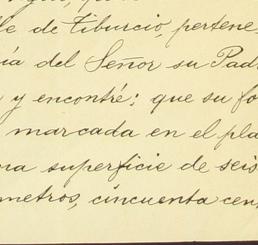 le de Tiburcio, pertene-
ía del Señor su Pad
y encontré; que su fo
marcada en el pla
na superficie de seis
metros, cincuenta cen